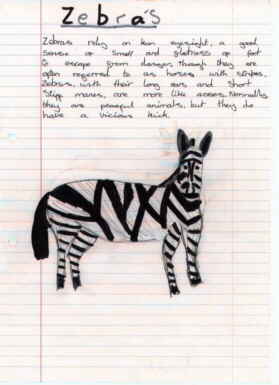 Zebra's
Zebras rely on keen eyesight, a good
sense of smell and fleetness of foot
to escape from danger, though they are
often referred to as horses with stripes.
Zebras, with their long ears and short
stiff manes, are more like asses. Normally
they are peaceful animals, but they do
have a vicious kick.